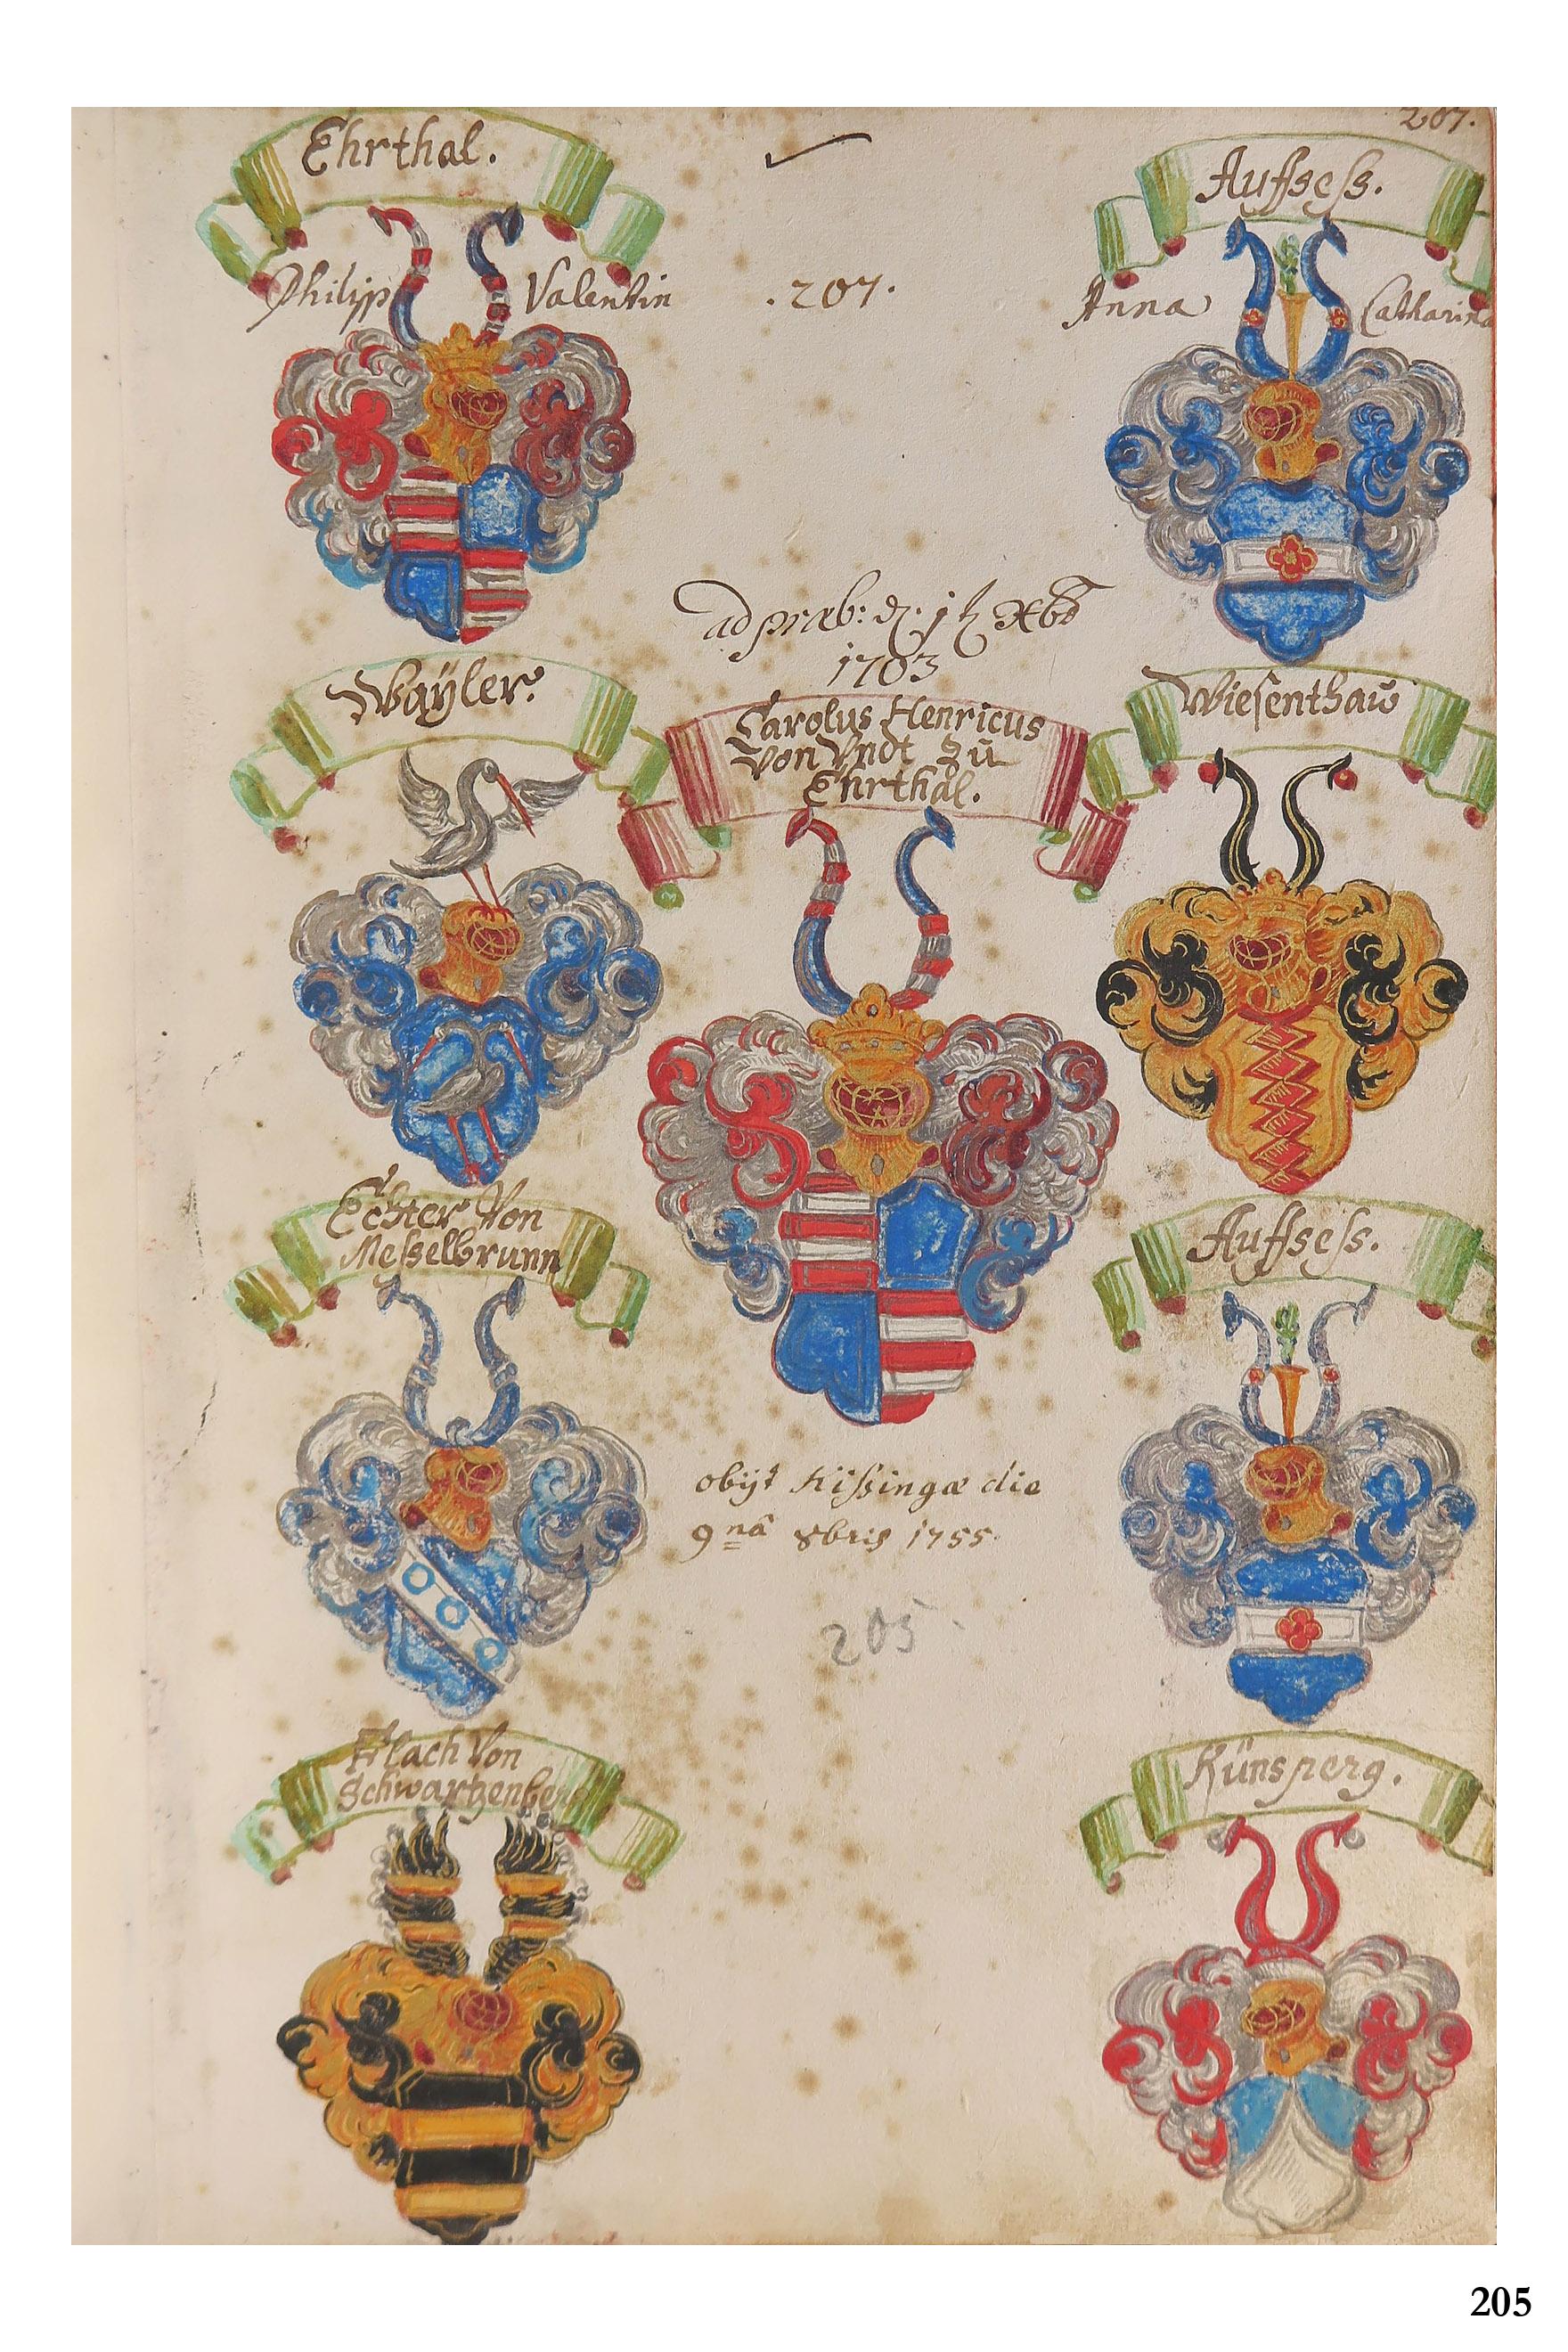 207.
Ehrthal.
Philipp Valentin
.207.
Auffsess.
Anna Catharina
ad præb: d. 1 Xbr
1703
Wayler.
Carolus Henricus
Von Vndt zu
Ehrthal.
Wiesenthaw
Echter Von
Messelbrunn
Auffsess.
obijt Kissingæ die
9nâ 8bris 1755.
205.
Flach Von
Schwartzenberg
Künsperg.
205